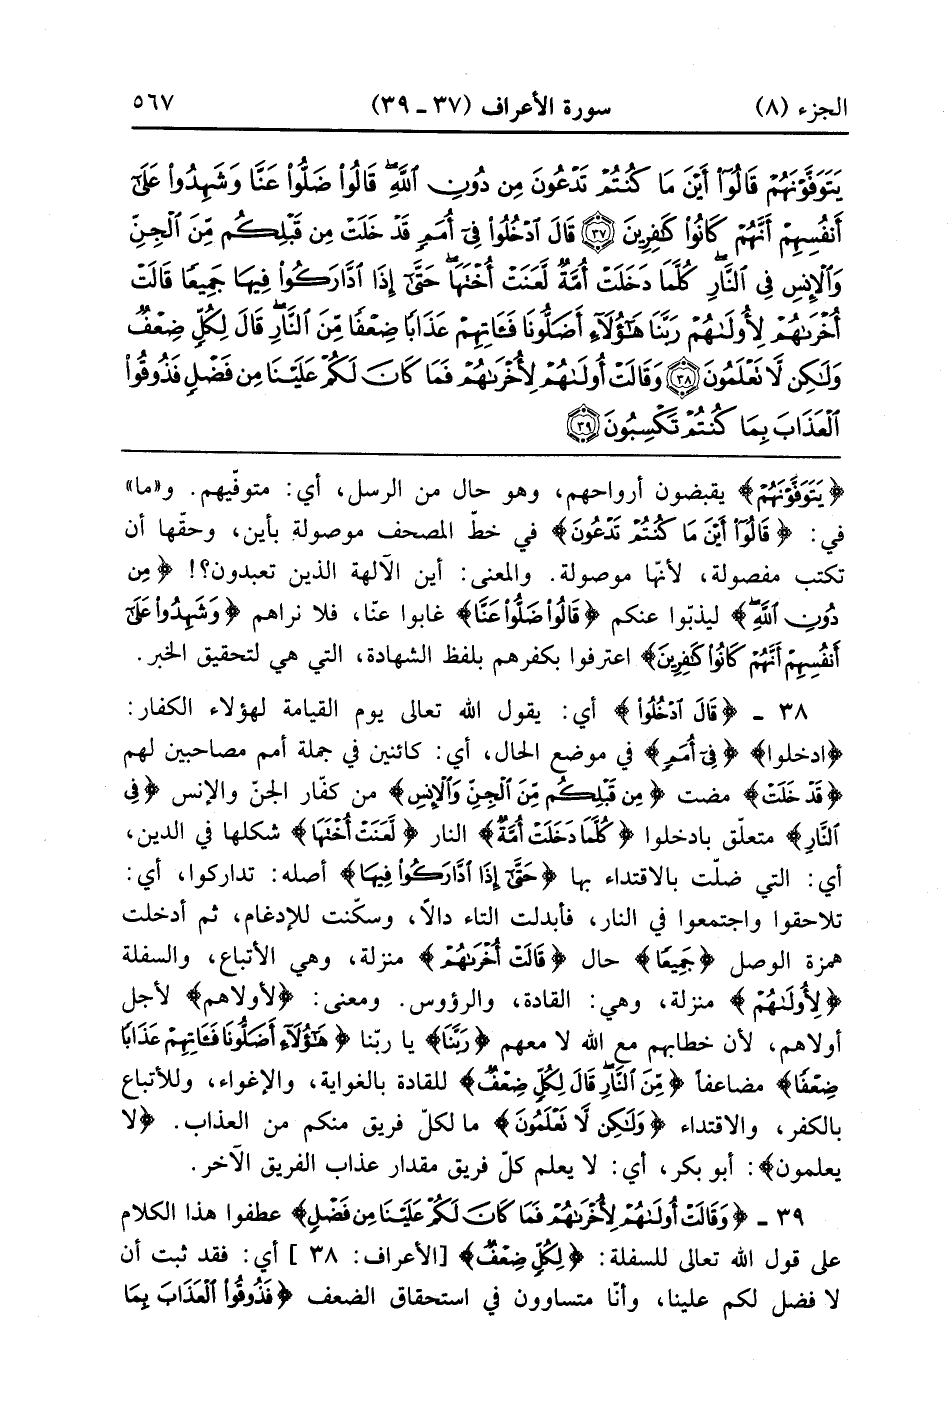 الجزء (٨) سورة الأعراف (٣٧ ـ ٣٩) ٥٦٧
يَتَوَفَّوْنَهُمْ قَالُوٓا۟ أَيْنَ مَا كُنتُمْ تَدْعُونَ مِن دُونِ ٱللَّهِۖ قَالُوا۟ ضَلُّوا۟ عَنَّا وَشَهِدُوا۟ عَلَىٰٓ
أَنفُسِهِمْ أَنَّهُمْ كَانُوا۟ كَٰفِرِينَ ﴿٣٧﴾ قَالَ ٱدْخُلُوا۟ فِىٓ أُمَمٍ قَدْ خَلَتْ مِن قَبْلِكُم مِّنَ ٱلْجِنِّ
وَٱلْإِنسِ فِى ٱلنَّارِۖ كُلَّمَا دَخَلَتْ أُمَّةٌ لَّعَنَتْ أُخْتَهَاۖ حَتَّىٰٓ إِذَا ٱدَّارَكُوا۟ فِيهَا جَمِيعًا قَالَتْ
أُخْرَىٰهُمْ لِأُولَىٰهُمْ رَبَّنَا هَٰٓؤُلَآءِ أَضَلُّونَا فَـَٔاتِهِمْ عَذَابًا ضِعْفًا مِّنَ ٱلنَّارِۖ قَالَ لِكُلٍّ ضِعْفٌ
وَلَٰكِن لَّا تَعْلَمُونَ ﴿٣٨﴾ وَقَالَتْ أُولَىٰهُمْ لِأُخْرَىٰهُمْ فَمَا كَانَ لَكُمْ عَلَيْنَا مِن فَضْلٍ فَذُوقُوا۟
ٱلْعَذَابَ بِمَا كُنتُمْ تَكْسِبُونَ ﴿٣٩﴾
﴿يَتَوَفَّوْنَهُمْ﴾ يقبضون أرواحهم، وهو حال من الرسل، أي: متوفّيهم. و«ما»
في: ﴿قَالُوٓا۟ أَيْنَ مَا كُنتُمْ تَدْعُونَ﴾ في خطّ المصحف موصولة بأين، وحقّها أن
تكتب مفصولة، لأنها موصولة. والمعنى: أين الآلهة الذين تعبدون؟! ﴿مِن
دُونِ ٱللَّهِۖ﴾ ليذبّوا عنكم ﴿قَالُوا۟ ضَلُّوا۟ عَنَّا﴾ غابوا عنّا، فلا نراهم ﴿وَشَهِدُوا۟ عَلَىٰٓ
أَنفُسِهِمْ أَنَّهُمْ كَانُوا۟ كَٰفِرِينَ﴾ اعترفوا بكفرهم بلفظ الشهادة، التي هي لتحقيق الخبر.
٣٨ ـ ﴿قَالَ ٱدْخُلُوا۟﴾ أي: يقول الله تعالى يوم القيامة لهؤلاء الكفار:
﴿ادخلوا﴾ ﴿فِىٓ أُمَمٍ﴾ في موضع الحال، أي: كائنين في جملة أمم مصاحبين لهم
﴿قَدْ خَلَتْ﴾ مضت ﴿مِن قَبْلِكُم مِّنَ ٱلْجِنِّ وَٱلْإِنسِ﴾ من كفّار الجنّ والإنس ﴿فِى
ٱلنَّارِ﴾ متعلّق بادخلوا ﴿كُلَّمَا دَخَلَتْ أُمَّةٌ﴾ النار ﴿لَّعَنَتْ أُخْتَهَا﴾ شكلها في الدين،
أي: التي ضلّت بالاقتداء بها ﴿حَتَّىٰٓ إِذَا ٱدَّارَكُوا۟ فِيهَا﴾ أصله: تداركوا، أي:
تلاحقوا واجتمعوا في النار، فأبدلت التاء دالاً، وسكّنت للإدغام، ثم أدخلت
همزة الوصل ﴿جَمِيعًا﴾ حال ﴿قَالَتْ أُخْرَىٰهُمْ﴾ منزلة، وهي الأتباع، والسفلة
﴿لِأُولَىٰهُمْ﴾ منزلة، وهي: القادة، والرؤوس. ومعنى: ﴿لأولاهم﴾ لأجل
أولاهم، لأن خطابهم مع الله لا معهم ﴿رَبَّنَا﴾ يا ربّنا ﴿هَٰٓؤُلَآءِ أَضَلُّونَا فَـَٔاتِهِمْ عَذَابًا
ضِعْفًا﴾ مضاعفاً ﴿مِّنَ ٱلنَّارِۖ قَالَ لِكُلٍّ ضِعْفٌ﴾ للقادة بالغواية، والإغواء، وللأتباع
بالكفر، والاقتداء ﴿وَلَٰكِن لَّا تَعْلَمُونَ﴾ ما لكلّ فريق منكم من العذاب. ﴿لا
يعلمون﴾: أبو بكر، أي: لا يعلم كلّ فريق مقدار عذاب الفريق الآخر.
٣٩ ـ ﴿وَقَالَتْ أُولَىٰهُمْ لِأُخْرَىٰهُمْ فَمَا كَانَ لَكُمْ عَلَيْنَا مِن فَضْلٍ﴾ عطفوا هذا الكلام
على قول الله تعالى للسفلة: ﴿لِكُلٍّ ضِعْفٌ﴾ [الأعراف: ٣٨] أي: فقد ثبت أن
لا فضل لكم علينا، وأنّا متساوون في استحقاق الضعف ﴿فَذُوقُوا۟ ٱلْعَذَابَ بِمَا